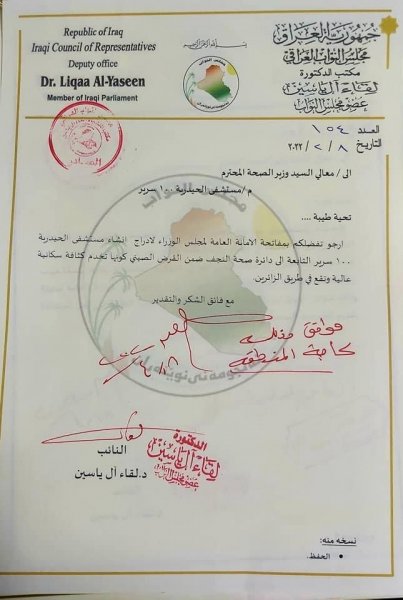 Republic of Iraq
Iraqi Council of Representatives
Deputy office
Dr. Liqaa Al-Yaseen
Member of Iraqi Parliament
بسم الله الرحمن الرحيم
جمهورية العراق
مجلس النواب العراقي
مكتب الدكتورة
لقاء آل ياسين
عضو مجلس النواب
العدد ١٥٤
التاريخ ٢٠٢٢/٢/٨
الى / معالي السيد وزير الصحة المحترم
م / مستشفى الحيدرية ١٠٠ سرير
تحية طيبة ....
ارجو تفضلكم بمفاتحة الامانة العامة لمجلس الوزراء لادراج إنشاء مستشفى الحيدرية
١٠٠ سرير التابعة الى دائرة صحة النجف ضمن القرض الصيني كونها تخدم كثافة سكانية
عالية وتقع في طريق الزائرين.
مع فائق الشكر والتقدير
موافق
حاجة المنطقة
الدكتورة
لقاء آل ياسين
عضو مجلس النواب
النائب
د.لقاء آل ياسين
نسخه منه:
• الحفظ.